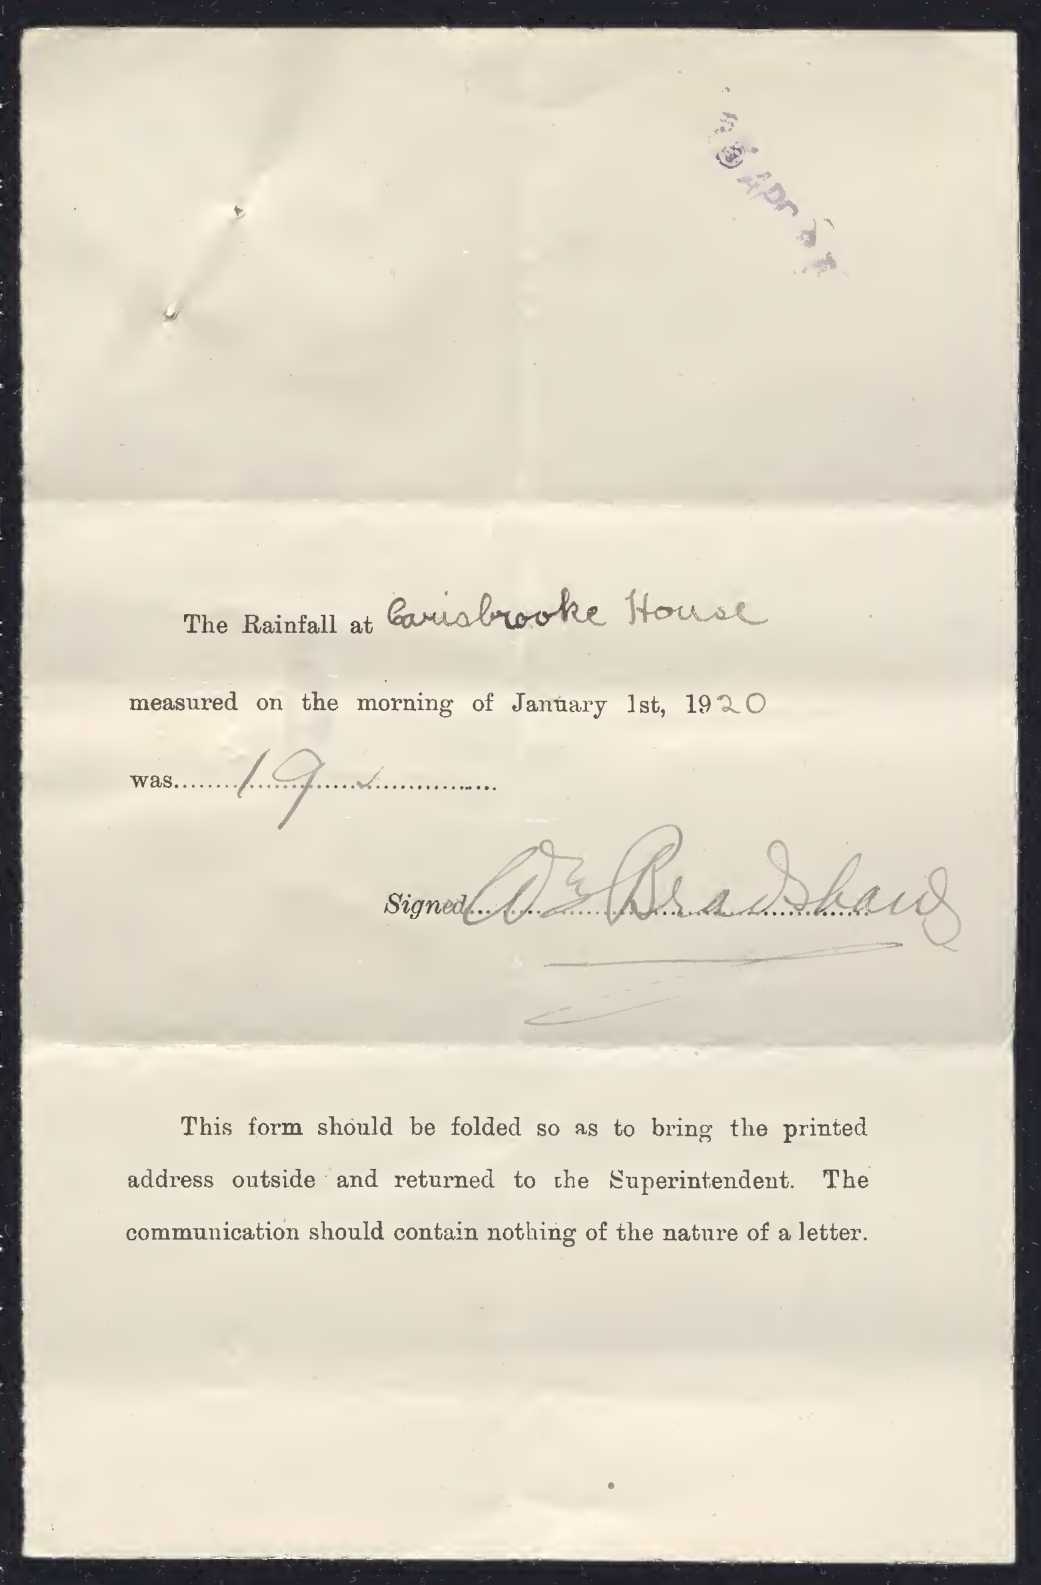 Apr
The Rainfall at Carisbrooke House
measured on the morning of January 1st, 1920
was........19................
Signed Wm Bradshaw
This form should be folded so as to bring the printed
address outside and returned to the Superintendent. The
communication should contain nothing of the nature of a letter.